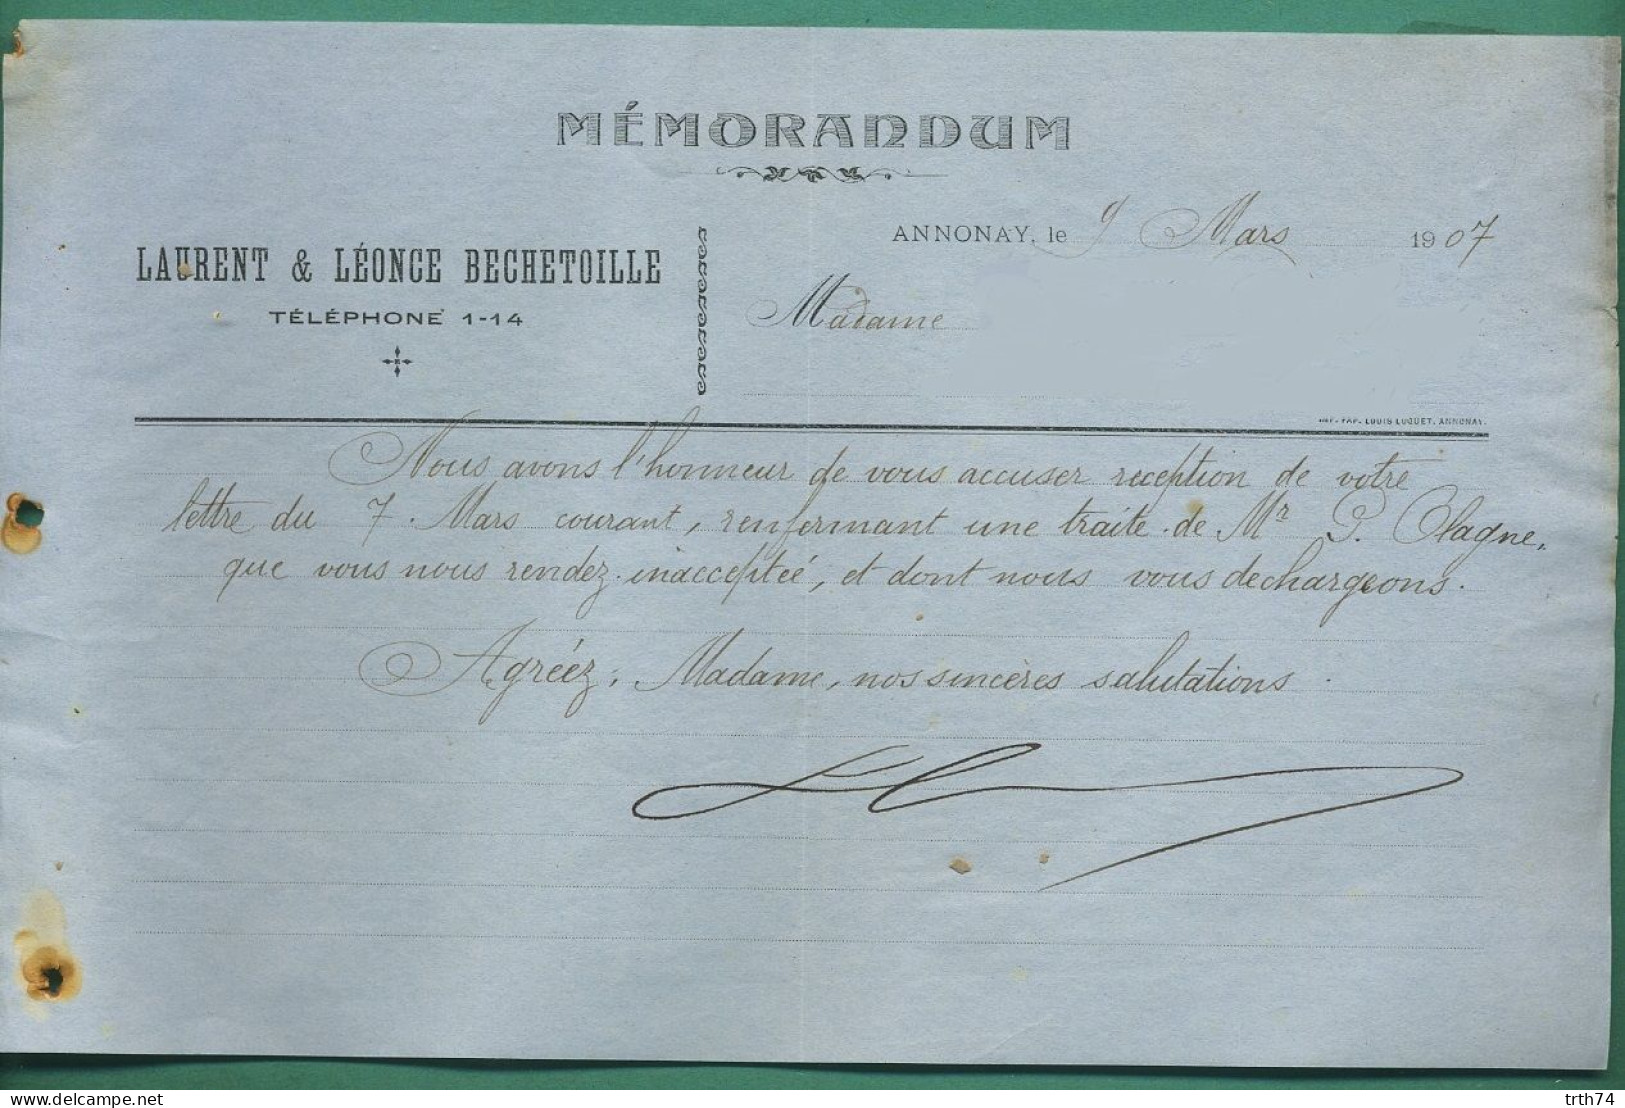 MÉMORANDUM
ANNONAY, le 9 Mars 1907
LAURENT & LÉONCE BECHETOILLE
TÉLÉPHONE 1-14
Madame
IMP. PAP. LOUIS LUQUET, ANNONAY.
Nous avons l'honneur de vous accuser reception de votre
lettre du 7 Mars courant, renfermant une traite de Mr P. Clagne,
que vous nous rendez inacceptéé, et dont nous vous dechargeons.
Agréez, Madame, nos sincères salutations.
delcampe.net
trth74